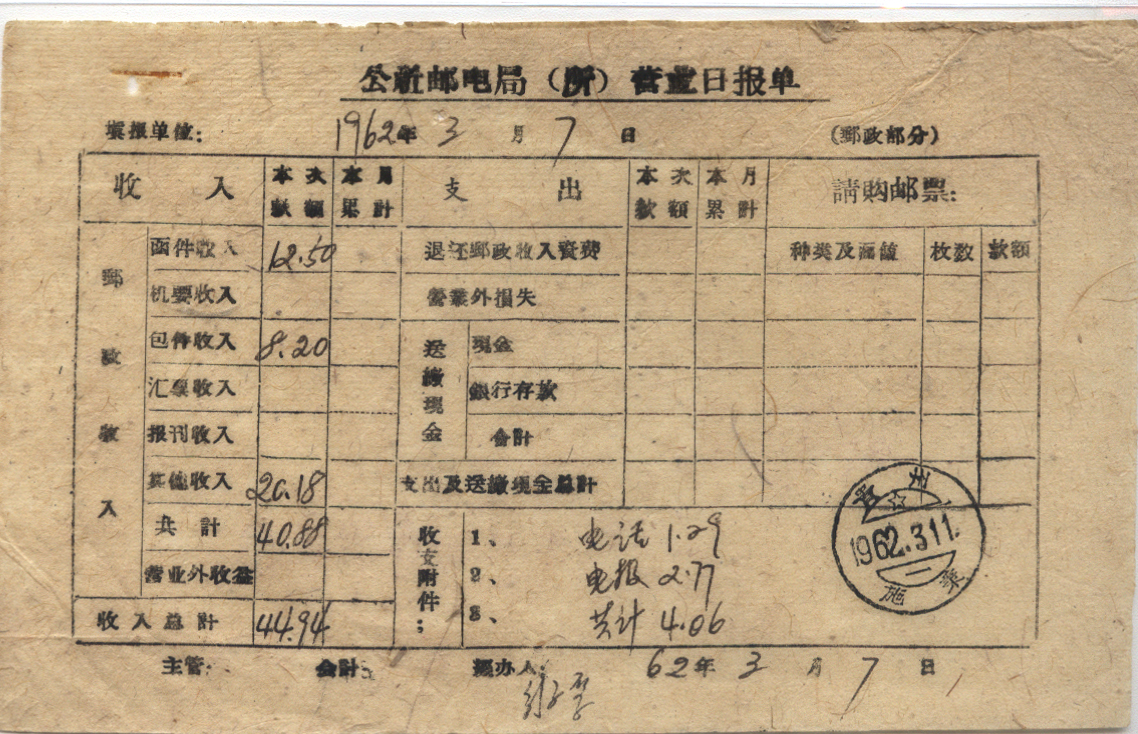 公新邮电局（所）营业日报单
填报单位： 1962年 3 月 7 日 （郵政部分）
收入 本次款額 本月累計 支出 本次款額 本月累計 請购邮票：
郵政收入 函件收入 12.50 退还郵政收入資费 种类及面值 枚数 款額
机要收入 營業外損失
包件收入 8.20 送繳现金 现金
汇票收入 銀行存款
报刊收入 合計
其他收入 20.18 支出及送繳现金总計
共計 40.88 收支附件： 1、 电话 1.29
营业外收益 2、 电报 2.77
收入总計 44.94 3、 共计 4.06
贵州
1962.3.11.
二
施秉
主管： 会計： 經办人： 62年 3 月 7 日